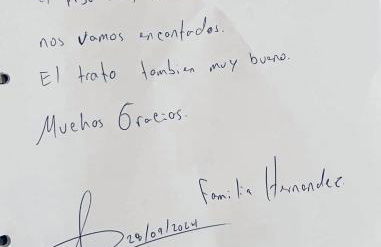 nos vamos encantados.
El trato tambien muy bueno.
Muchas Gracias.
Familia Hernandez
28/09/2024